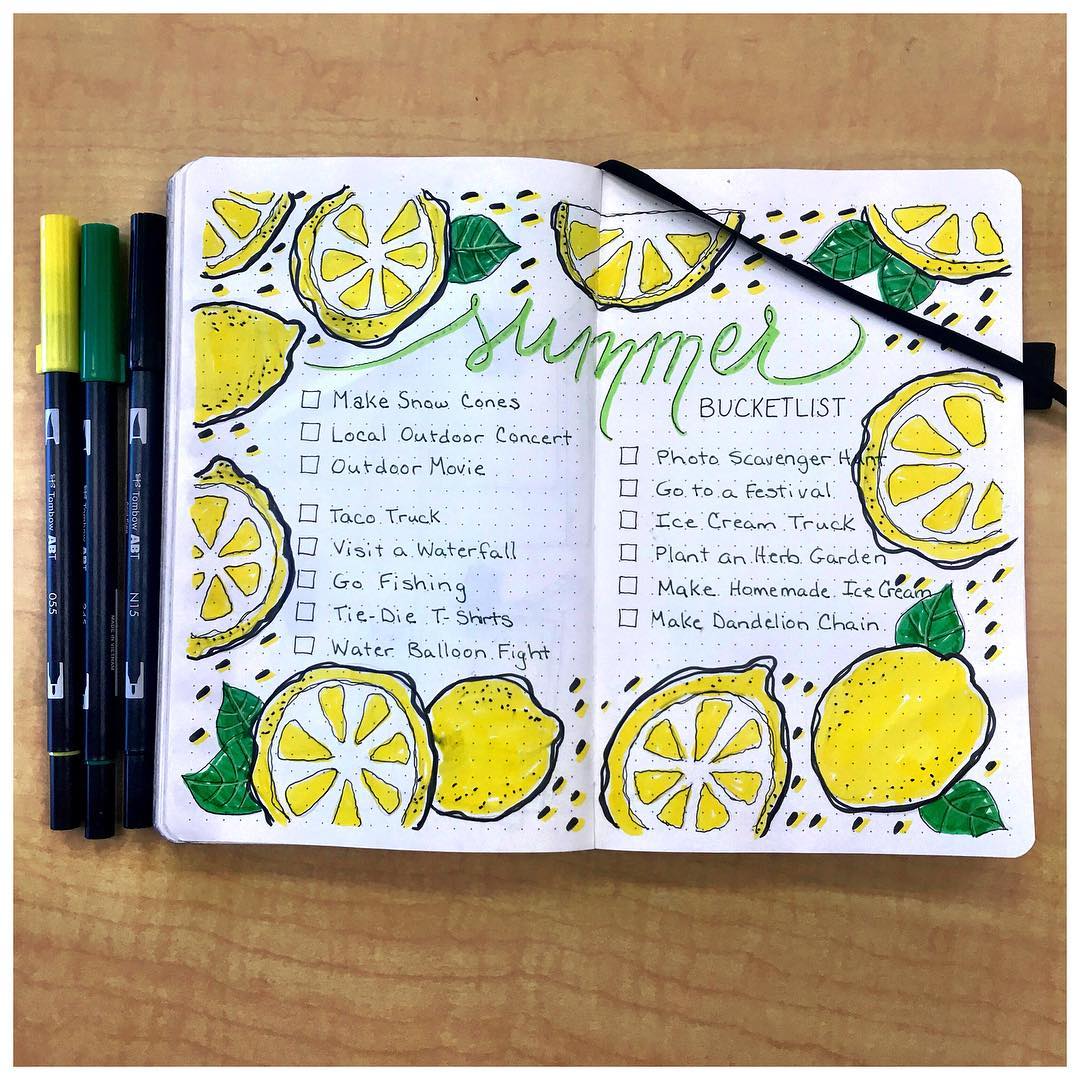 summer
BUCKETLIST
Make Snow Cones
Local Outdoor Concert
Outdoor Movie
Taco Truck
Visit a Waterfall
Go Fishing
Tie-Die T-Shirts
Water Balloon Fight
Photo Scavenger Hunt
Go to a Festival
Ice Cream Truck
Plant an Herb Garden
Make Homemade Ice Cream
Make Dandelion Chain
Tombow ABT
055
Tombow ABT
MADE IN VIETNAM
Tombow ABT
N15